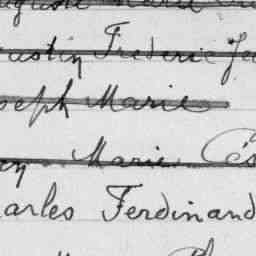 ustin Frederic Je
seph Marie
en Marie Cés
arles Ferdinand